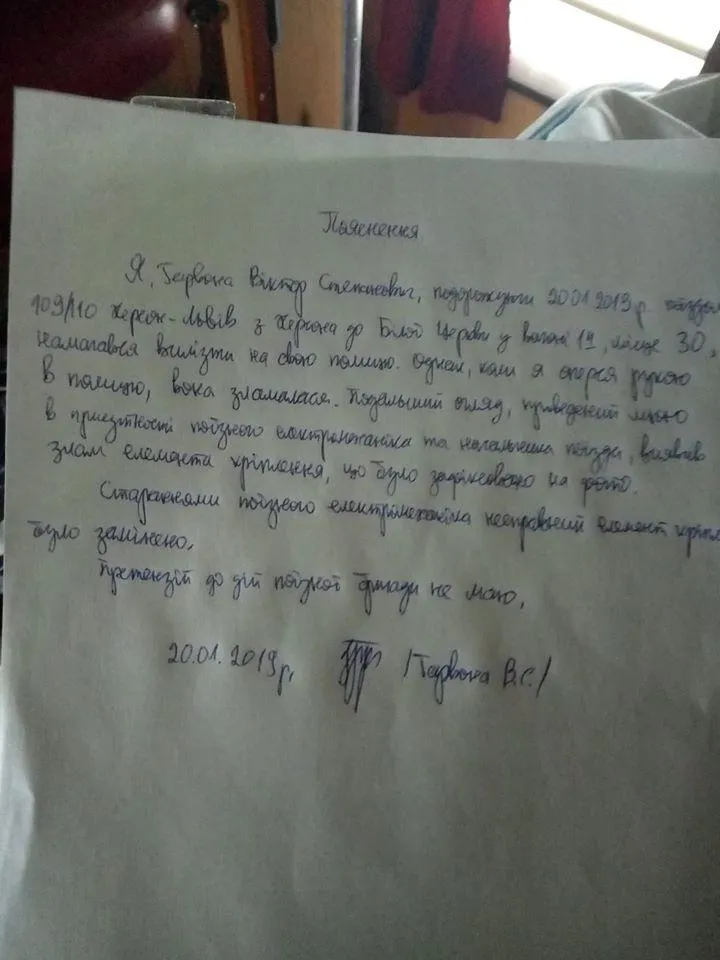 Пояснення
Я, Гаврона Віктор Степанович, подорожуючи 20.01.2019 р. поїздом
109/110 Херсон-Львів з Херсона до Білої Церкви у вагоні 19, місце 30,
намагався вилізти на свою полицю. Однак, коли я оперся рукою
в полицю, вона зламалася. Подальший огляд, проведений мною
в присутності поїзного електромеханіка та начальника поїзда, виявив
злам елемента кріплення, що було зафіксовано на фото.
Стараннями поїзного електромеханіка несправний елемент кріпл
було замінено.
Претензій до дій поїзної бригади не маю.
20.01.2019 р. /Гаврона В.С./